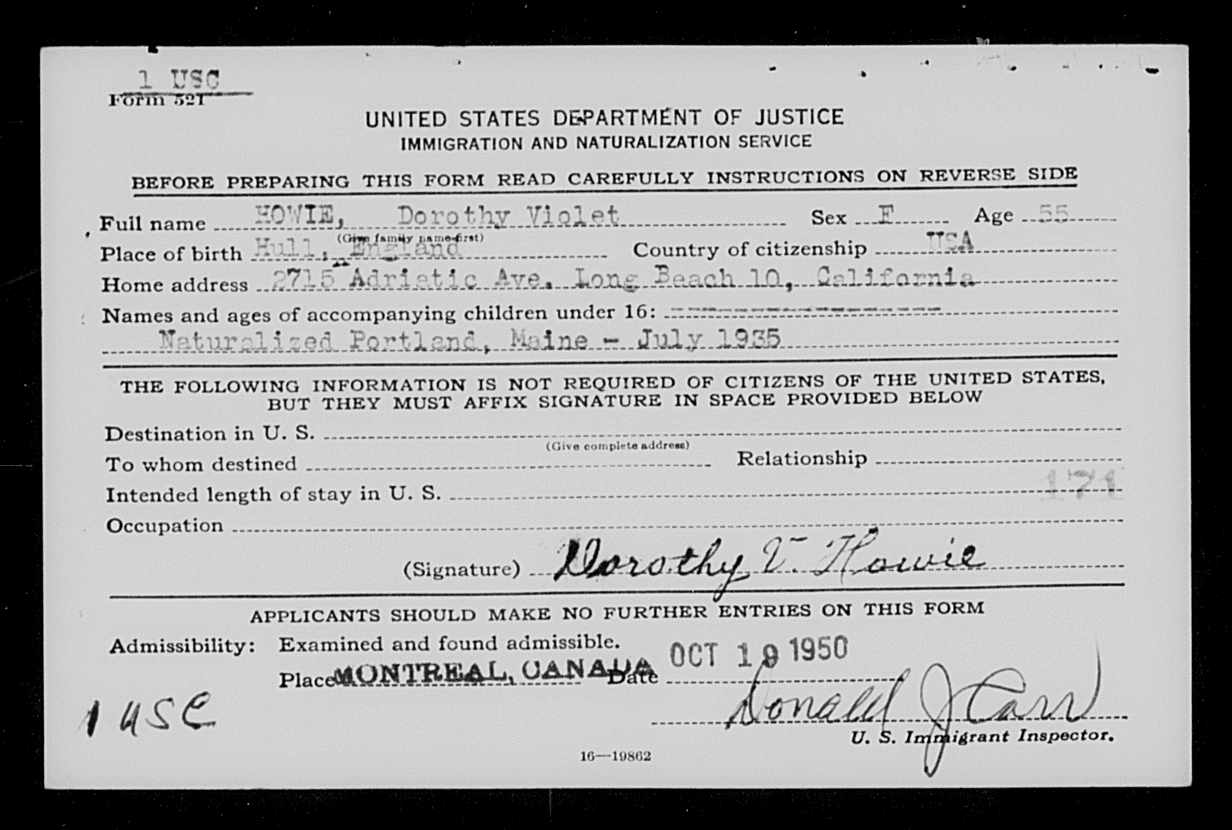 1 USC
Form 521
UNITED STATES DEPARTMENT OF JUSTICE
IMMIGRATION AND NATURALIZATION SERVICE
BEFORE PREPARING THIS FORM READ CAREFULLY INSTRUCTIONS ON REVERSE SIDE
Full name HOWIE, Dorothy Violet Sex F Age 55
(Give family name first)
Place of birth Hull, England Country of citizenship USA
Home address 2715 Adriatic Ave. Long Beach 10, California
Names and ages of accompanying children under 16:
Naturalized Portland, Maine - July 1935
THE FOLLOWING INFORMATION IS NOT REQUIRED OF CITIZENS OF THE UNITED STATES,
BUT THEY MUST AFFIX SIGNATURE IN SPACE PROVIDED BELOW
Destination in U. S.
(Give complete address)
To whom destined Relationship
Intended length of stay in U. S. 171
Occupation
(Signature) Dorothy V. Howie
APPLICANTS SHOULD MAKE NO FURTHER ENTRIES ON THIS FORM
Admissibility: Examined and found admissible.
Place MONTREAL, CANADA Date OCT 19 1950
1 USC Donald J Carr
U. S. Immigrant Inspector.
16—19862